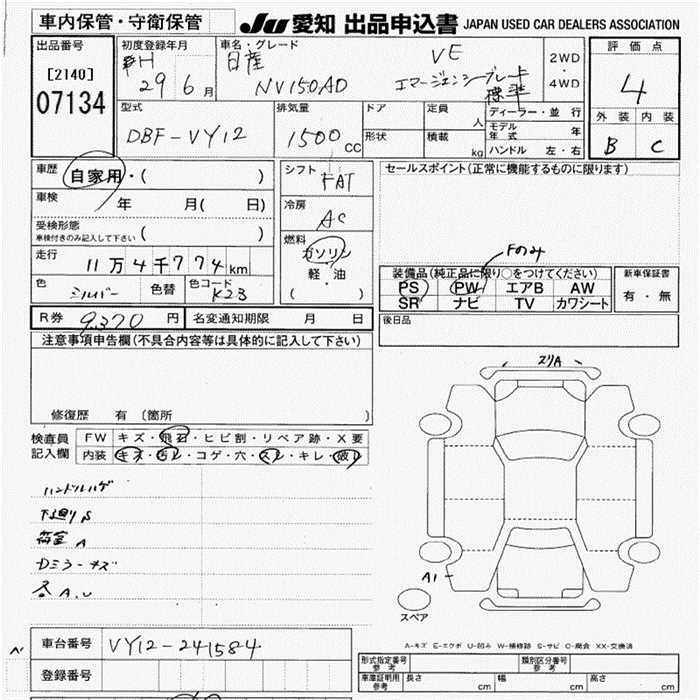 車内保管・守衛保管
JU 愛知 出品申込書 JAPAN USED CAR DEALERS ASSOCIATION
出品番号
[2140]
07134
初度登録年月
H
29 6 月
車名・グレード
日産 VE
NV150AD エマージェンシーブレーキ
標準
2WD
・
4WD
評価点
4
外装 内装
B C
型式
DBF-VY12
排気量
1500 cc
ドア
定員
人
形状
積載
kg
ディーラー・並行
モデル年式 年
ハンドル 左・右
車歴
自家用・( )
車検
年 月( 日)
受検形態
車検付きのみ記入して下さい ( )
走行
11万4千774km
色
シルバー
色替
色コード
K23
シフト
FAT
冷房
AC
燃料
ガソリン
軽・油
( )
セールスポイント(正常に機能するものに限ります)
Fのみ
装備品(純正品に限り○をつけてください)
PS PW エアB AW
SR ナビ TV カワシート
新車保証書
有・無
後日品
R券 9,370 円 名変通知期限 月 日
注意事項申告欄(不具合内容等は具体的に記入して下さい)
修復歴 有 〔箇所 〕
検査員
記入欄
FW キズ・飛石・ヒビ割・リペア跡・X要
内装 キズ・汚レ・コゲ・穴・スレ・キレ・破レ
ハンドルハゲ
下廻りS
荷室A
Dミラーキズ
各A.U
スリA
A1
スペア
A-キズ E-エクボ U-凹み W-補修跡 S-サビ C-腐食 XX-交換済
車台番号 VY12-241584
登録番号
形式指定番号
参考
類別区分番号
参考
車庫証明用
参考
長さ cm
幅 cm
高さ cm